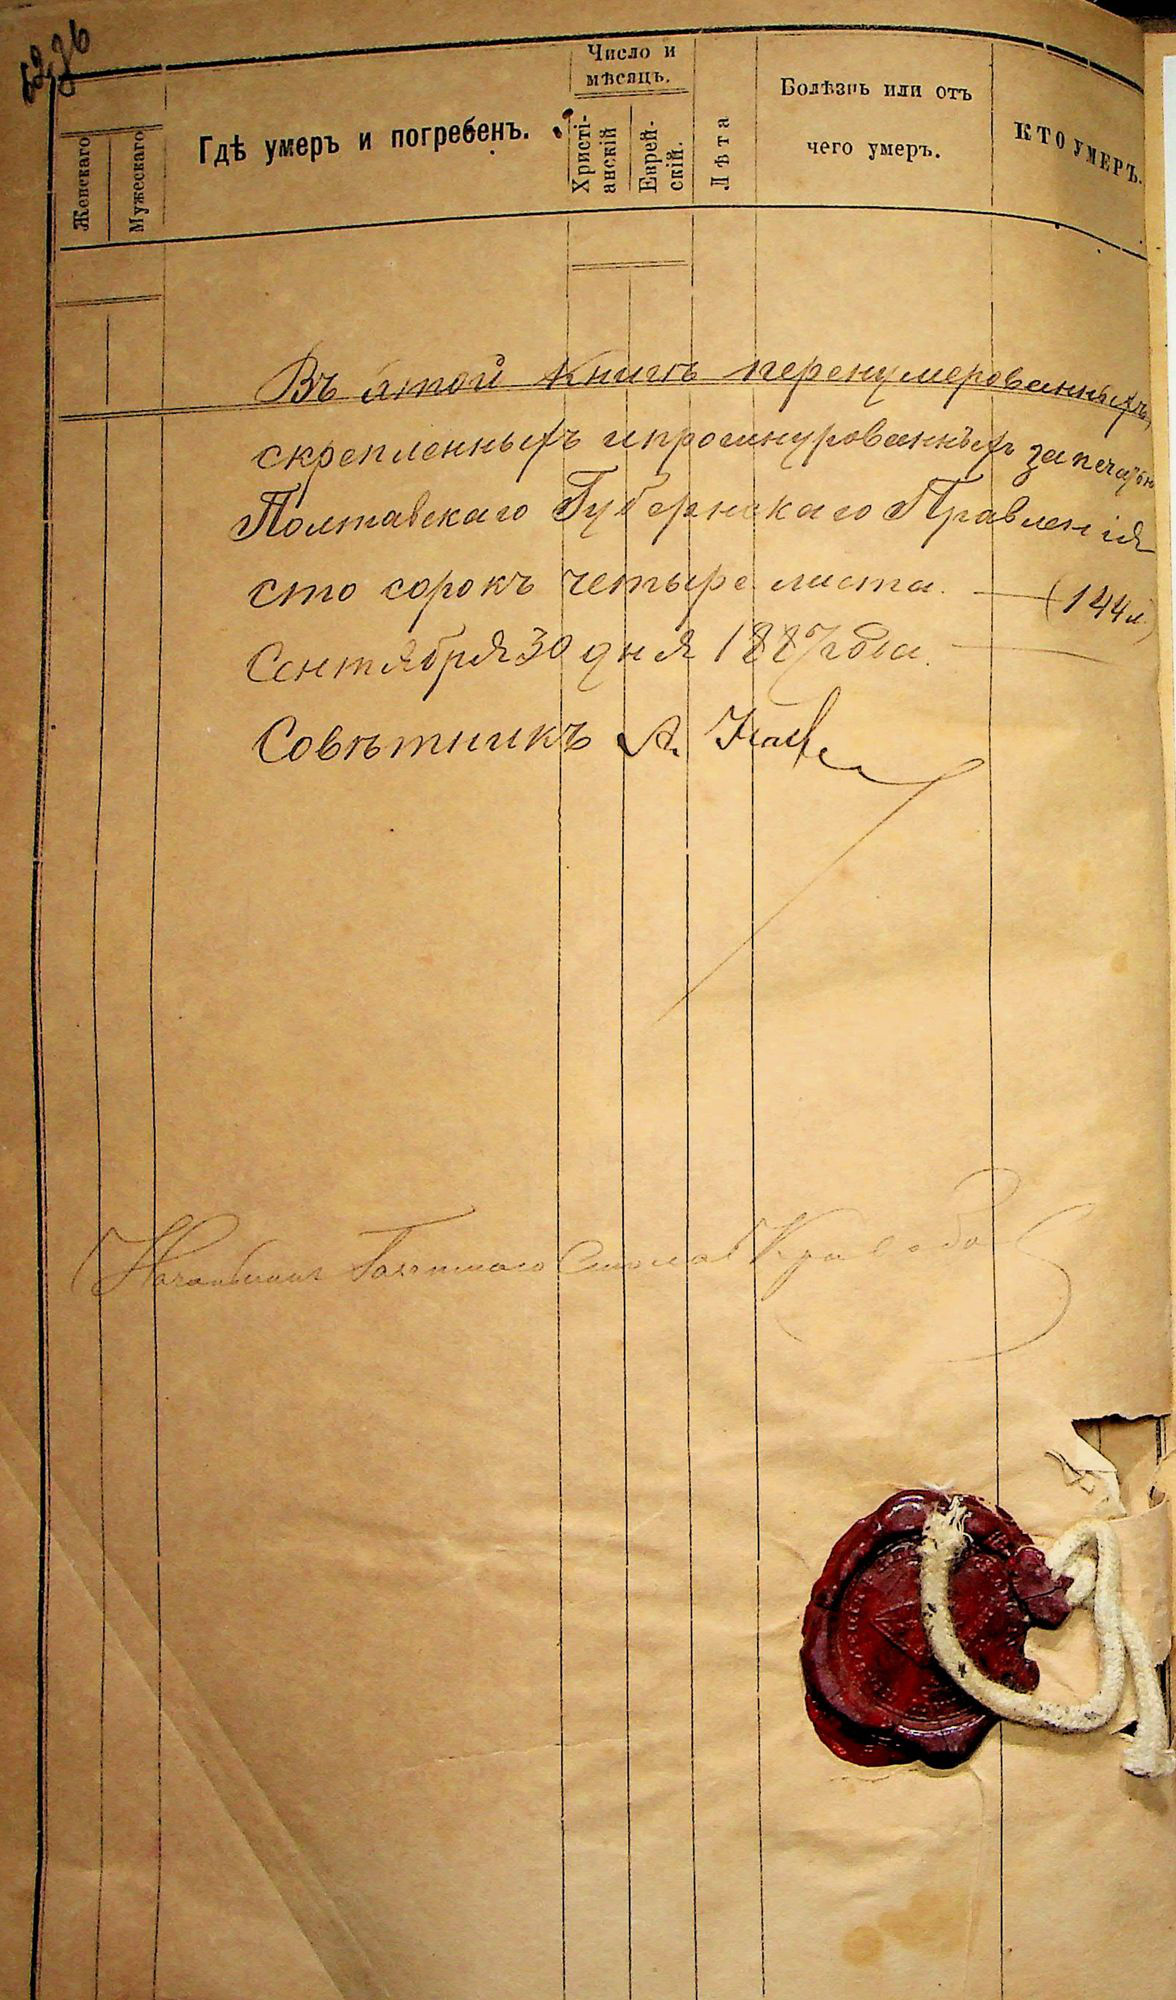 Женскаго
Мужескаго
Гдѣ умеръ и погребенъ.
Число и
мѣсяцъ.
Христі-
анскій
Еврей-
скій.
Лѣта
Болѣзнь или отъ
чего умеръ.
КТО УМЕРЪ.
Въ этой книгѣ перенумерованныхъ,
скрепленныхъ и прошнурованныхъ за печатью
Полтавскаго Губернскаго Правленія
сто сорокъ четыре листа. (144 л.)
Сентября 30 дня 1887 года.
Совѣтникъ А.
Начальникъ Газетнаго Стола